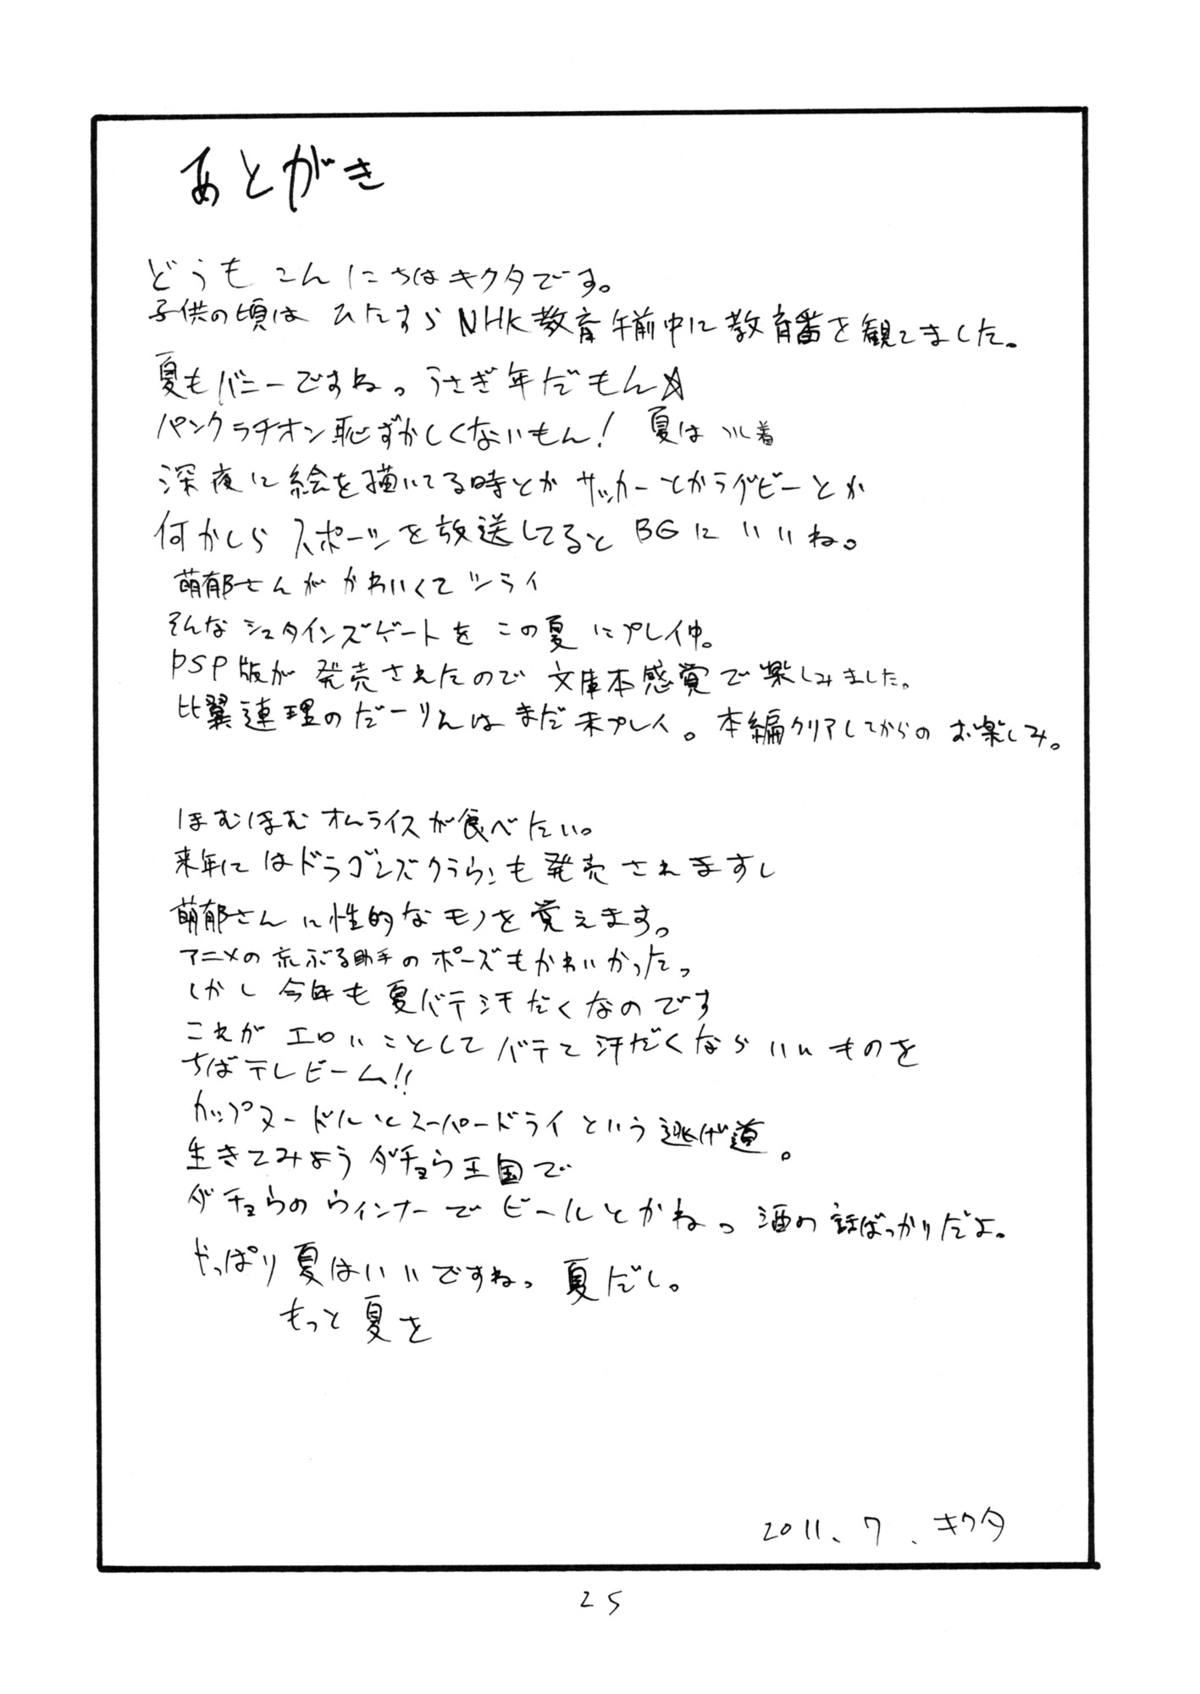 あとがき
どうもこんにちはキクタです。
子供の頃は ひたすらNHK教育午前中に教育番を観てました。
夏もバニーですねっ うさぎ年だもん☆
パンクラチオン恥ずかしくないもん! 夏は 着
深夜に絵を描いてる時とかサッカーとかラグビーとか
何かしらスポーツを放送してるとBGにいいね。
萌郁さんがかわいくてツライ
そんなシュタインズゲートをこの夏にプレイ中。
PSP版が発売されたので文庫本感覚で楽しみました。
比翼連理のだーりんはまだ未プレイ。本編クリアしてからのお楽しみ。
ほむほむオムライスが食べたい。
来年にはドラゴンズクラウンも発売されますし
萌郁さんに性的なモノを覚えます。
アニメの荒ぶる助手のポーズもかわいかったっ
しかし今年も夏バテ汗だくなのです
これがエロいことしてバテて汗だくならいいものを
ちばテレビーム!!
カップヌードルとスーパードライという逃げ道。
生きてみようダチョウ王国で
ダチョウのウィンナーでビールとかねっ 酒の話ばっかりだよ。
やっぱり夏はいいですねっ 夏だし。
もっと夏を
2011.7.キクタ
25